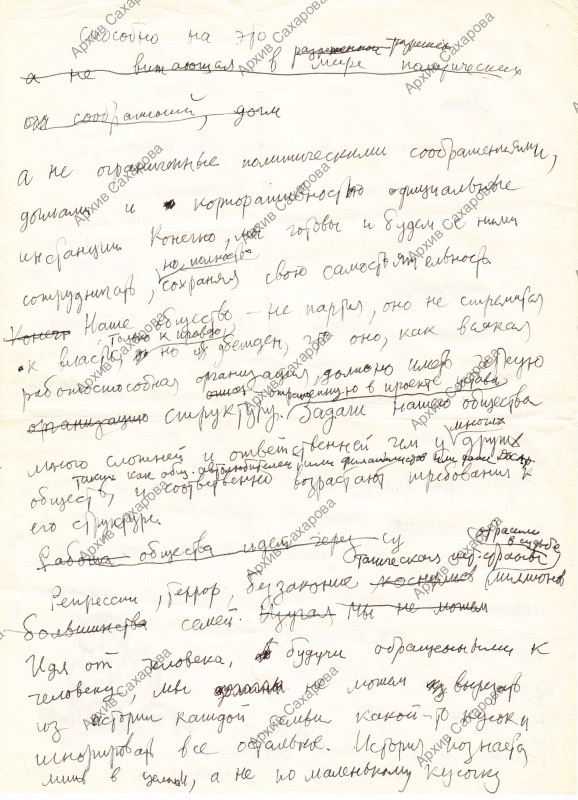 Способно на это
а не витающая в мире политических
соображений, догм
а не ограниченные политическими соображениями,
догмами и корпоративностью официальные
инстанции. Конечно, мы готовы и будем с ними
но полностью
сотрудничать, сохраняя свою самостоятельность.
Конечн Наше общество – не партия, оно не стремится
только к правде
к власти, но я убежден, что оно, как всякая
работоспособная организация, должно иметь четкую
отраженную в проекте устава
организацию структуру. Задачи нашего общества
много сложней и ответственней чем у многих других
таких как общ. автолюбителей, или филателистов или даже
обществ, и соответственно возрастают требования к
его структуре.
Работа общества идет через су
отразились в судьбе
Репрессии, террор, беззаконие коснулись миллионов
большинства семей. Изучая Мы не можем
Идя от человека, будучи обращенными к
человеку, мы должны не можем вырезать
из истории каждой семьи какой-то кусок и
игнорировать все остальное. История познается
лишь в целом, а не по маленькому кусочку
Архив Сахарова